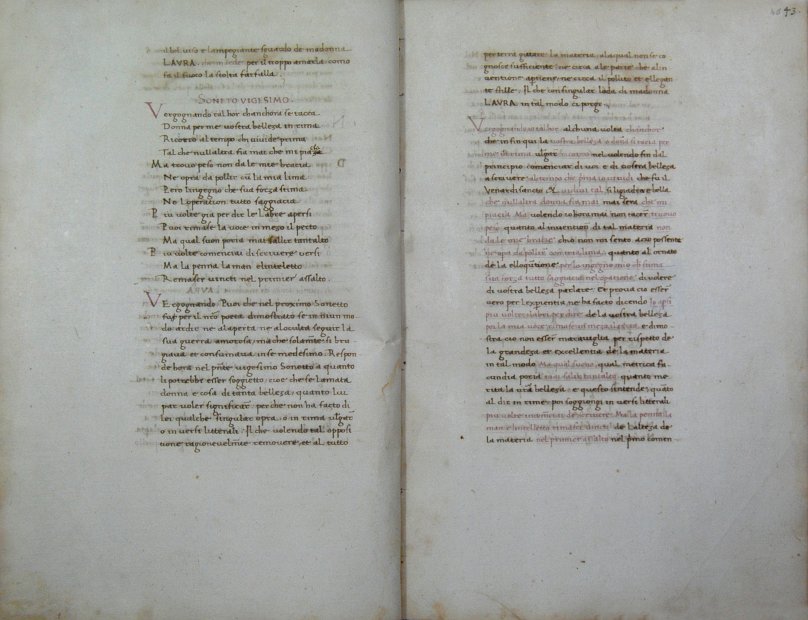 il bel viso e lampegiante sguardo de madonna
LAVRA. che in se de per il troppo amarla como
fa il fuoco la stolta farfalla.
SONETO VIGESIMO.
Vergognando tal hor chanchora se tacca
Donna per me vostra belleza in rima
Ricorro al tempo chi vi vide prima
Tal che nullaltra fia mai che mi piaza
Ma trovo peso non da le mie bracia
Ne opra da polir cū la mia lima
Pero lingegno che sua forza stima
Ne loperation tutto sagiaccia
Piu volte gia per dir le labre apersi
Puoi rimase la voce in mezo il pecto
Ma qual suon poria mai sallir tantalto
Piu volte comenciai di scrivere versi
Ma la penna la man elinteletto
Remaser vincti nel primier assalto.
Vergognando. Puoi che nel proximo Sonetto
fu per il nrō poeta dimostrato se in niun mo
do ardir ne alaperta ne aloculta seguir la
sua guerra amorosa, ma che solamēte si bru
giava et consumava in se medesimo. Respon
de hora nel pñte vigesimo Sonetto a quanto
li potrebbe esser soggietto, cioe che se lamata
donna e cosa di tanta belleza, quanto lui
par voler significare, perche non ha facto di
lei qualche singular opra, o in rima vulgar
o in versi litterali. Il che volendo tal opposi
tione ragionevelmte removere, et al tutto
43.
per terra gittare la materia, ala qual non se co
gnosce sufficiente, ne circa a le parte che al in
ventione aptiene, ne circa il polito et ellegan
te stille. Il che con singular loda di madonna
LAVRA. in tal modo ci porge
Vergognando tal hor alchuna volta chanchor
che in fin qui la vostra belleza o dona si tacia per
me in rima vulgar nel volendo fin dal
principio comenciar di voi e di vostra belleza
a scrivere che prima io vi vidi che fu il
Venardi sancto tal si ligiadra e bella
che nullaltra donna fia mai mai sera che mi
piacia Ma volendo io hora mai non tacer trovo
peso quanto al inventión di tal materia non
da le mie braze cho non mi sento acto possente
ne opra da polire con mia lima quanto al ornato
de la elloqutione pero lingegno mio che stima
sua forza tutto sagiaccia nel operatione di volere
di vostra belleza parlare. Et prova cio esser
vero per lexpientia ne ha facto dicendo Io apsi
piu volte i labri per dire de la vostra belleza
poi la mia voce rimase in mezo il petto e dimo
stra cio non esser maraviglia per rispetto de
la grandeza et excellentia de la materia
in tal modo Ma qual suono, qual metrica fa
cundia poria mai salir tantalto quanto me
rita la vrā belleza e questo sintende quāto
al dir in rime poi soggiongi in versi litterali
piu volte incominciai de scrivere Ma la penna la
man e lintelletto rimaser vincti de lalteza de
la materia nel primier assalto nel pmo comen